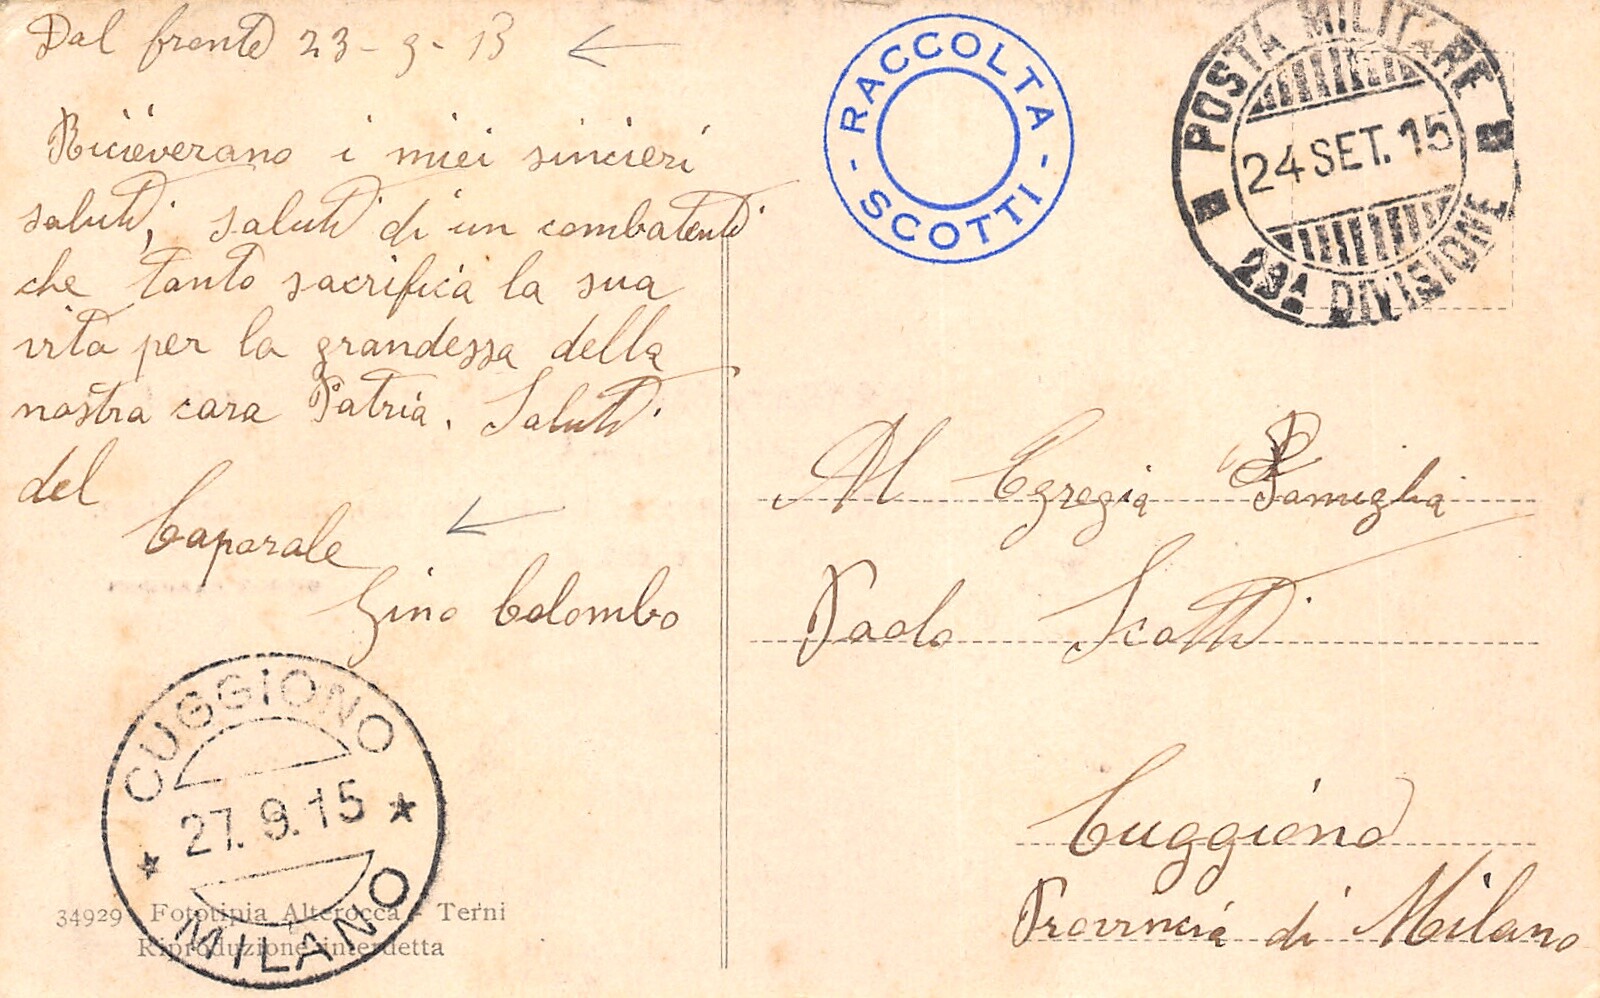 Dal fronte 23-9-15
Riceverano i miei sincieri
saluti, saluti di un combatenti
che tanto sacrifica la sua
vita per la grandessa della
nostra cara Patria. Saluti
del
Caporale
Gino Colombo
CUGGIONO
27.9.15
MILANO
34929 Fototipia Alterocca - Terni
Riproduzione interdetta
RACCOLTA
SCOTTI
POSTA MILITARE
24 SET. 15
DIVISIONE
Al Egregia Famiglia
Paolo Scotti
Cuggiono
Provincia di Milano